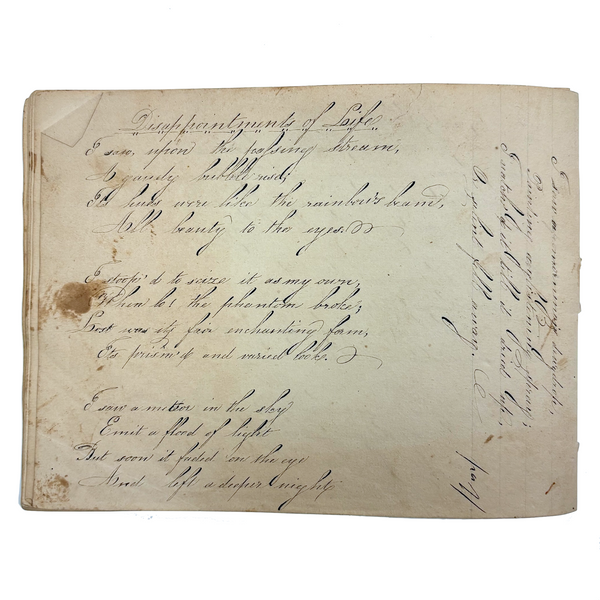 Disappointments of Life
I saw, upon the passing stream,
A gaudy bubble rise;
Its hues were like the rainbow's beam,
All beauty to the eyes.
I stoop'd to seize it as my own,
When lo! the phantom broke;
Lost was its fair enchanting form,
Its prism'd and varied look.
I saw a meteor in the sky
Emit a flood of light
But soon it faded on the eye
And left a deeper night
I saw a morning
I watch'd it till
A